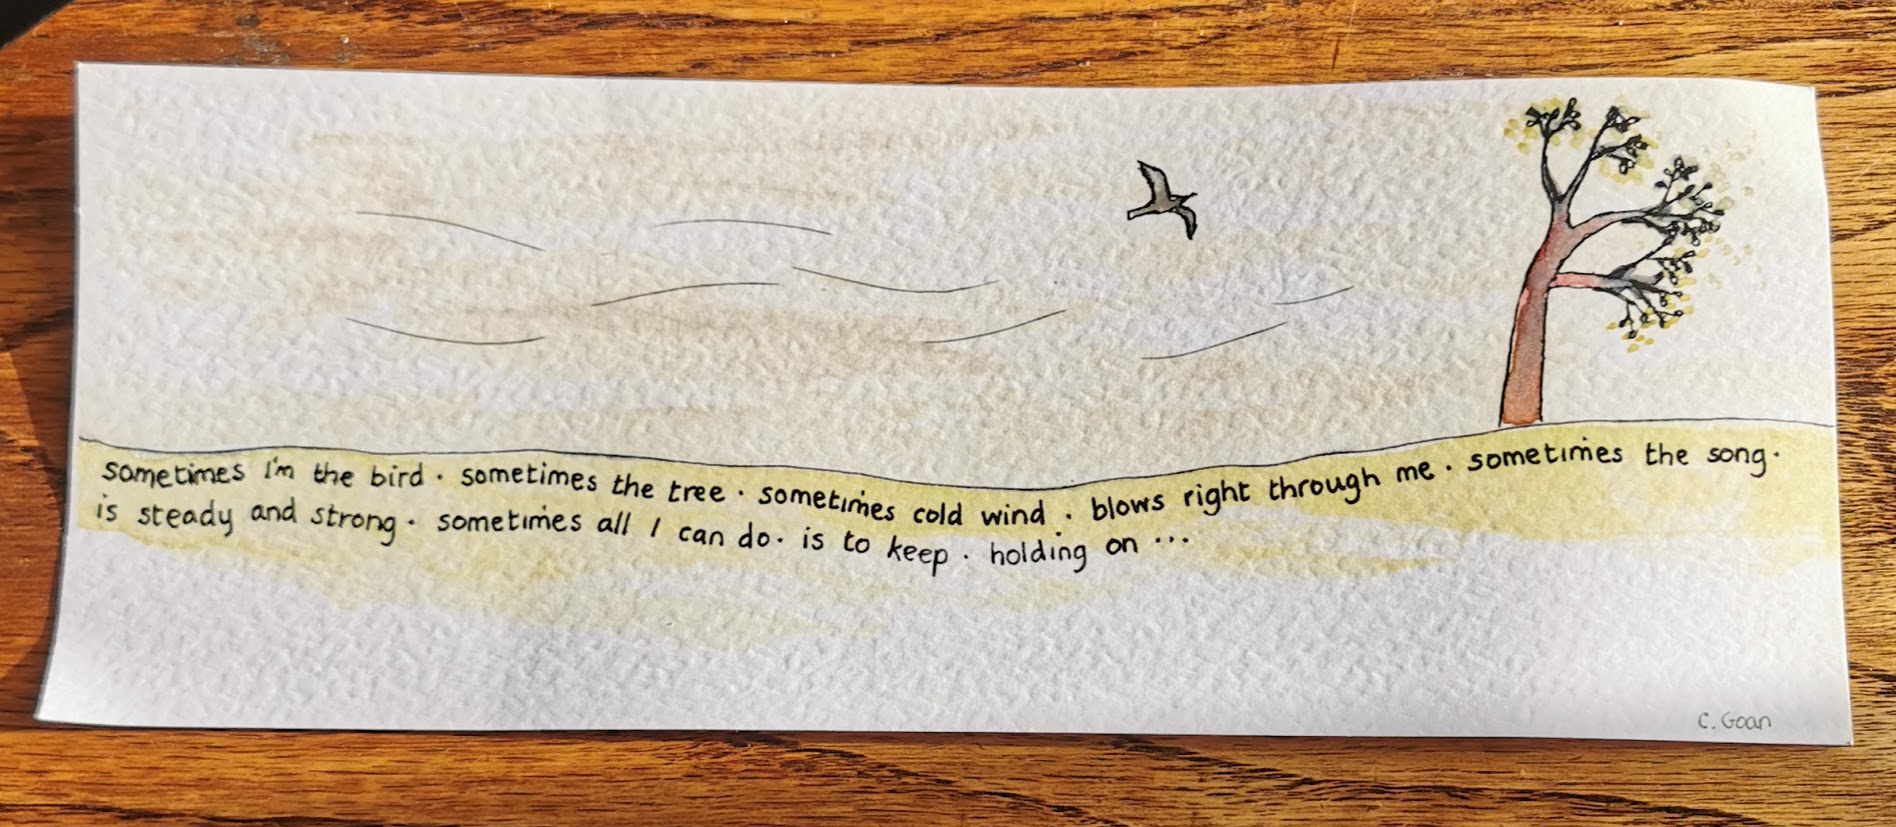 sometimes I'm the bird · sometimes the tree · sometimes cold wind · blows right through me · sometimes the song ·
is steady and strong · sometimes all I can do · is to keep · holding on ...
C. Goan